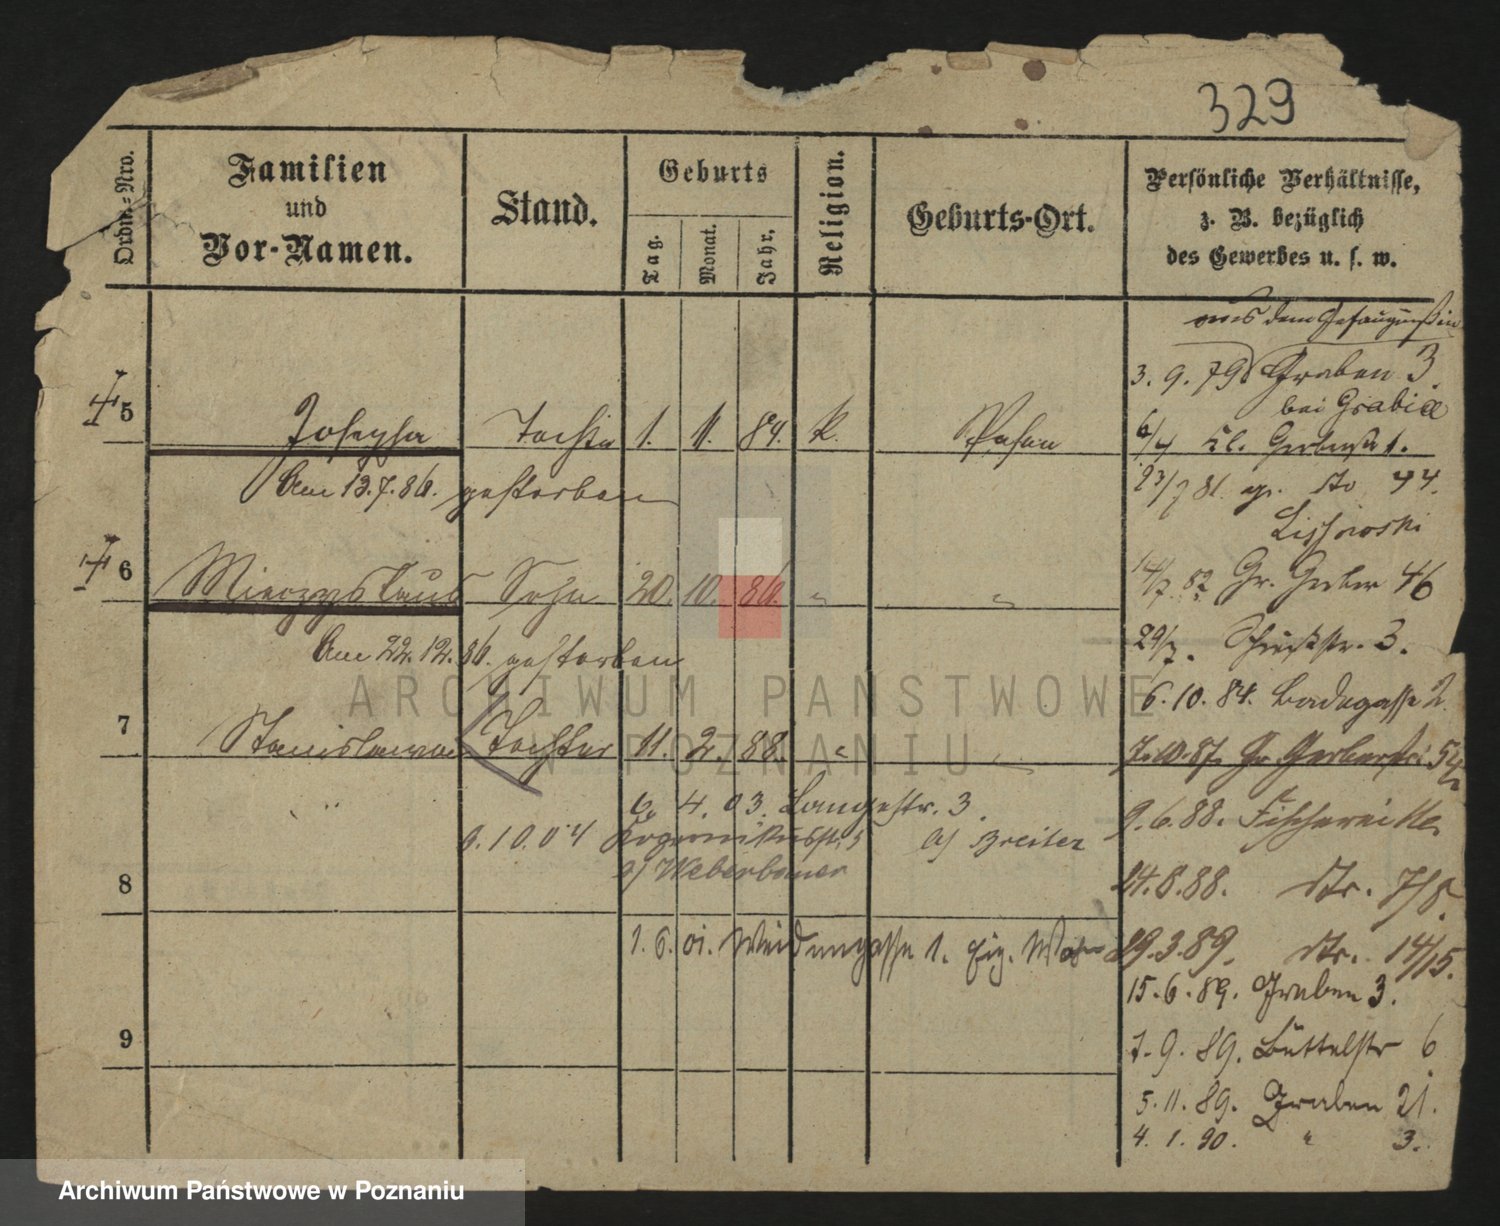 329
Ordn.-Nro.
Familien
und
Vor-Namen.
Stand.
Geburts
Tag.
Monat.
Jahr.
Religion.
Geburts-Ort.
Persönliche Verhältnisse,
z. B. bezüglich
des Gewerbes u. s. w.
aus dem Gefängniß in
3. 9. 79 Graben 3.
bei
5 Josepha Tochter 1. 11. 84. k. Posen
6/4 Kl. Gerberstr 1.
Am 13.7.86. gestorben
23/7 81. do 44.
6 Mieczyslaus Sohn 20. 10. 86. " "
14/7. 82 Gr. Gerber 46
Am 22.12.86. gestorben
29/7. 3.
6. 10. 84. Badegasse 2.
7 Stanislawa Tochter 11. 2. 88. " "
7.10.87. Gr Gerberstr. 52
6. 4. 03. Langestr. 3.
9.6.88. Fischerei
9.10.04 5 a/ Breiter
a/ Weberbauer
8
24.8.88. dto. 7/8.
1. 6. 01. Weidengasse 1. Eig. Wohn
29.3.89. dto. 14/15.
15.6.89. Graben 3.
9
7.9.89. Büttelstr 6
5.11.89. Graben 21.
4. 1. 90. " 3.
ARCHIWUM PAŃSTWOWE
W POZNANIU
Archiwum Państwowe w Poznaniu